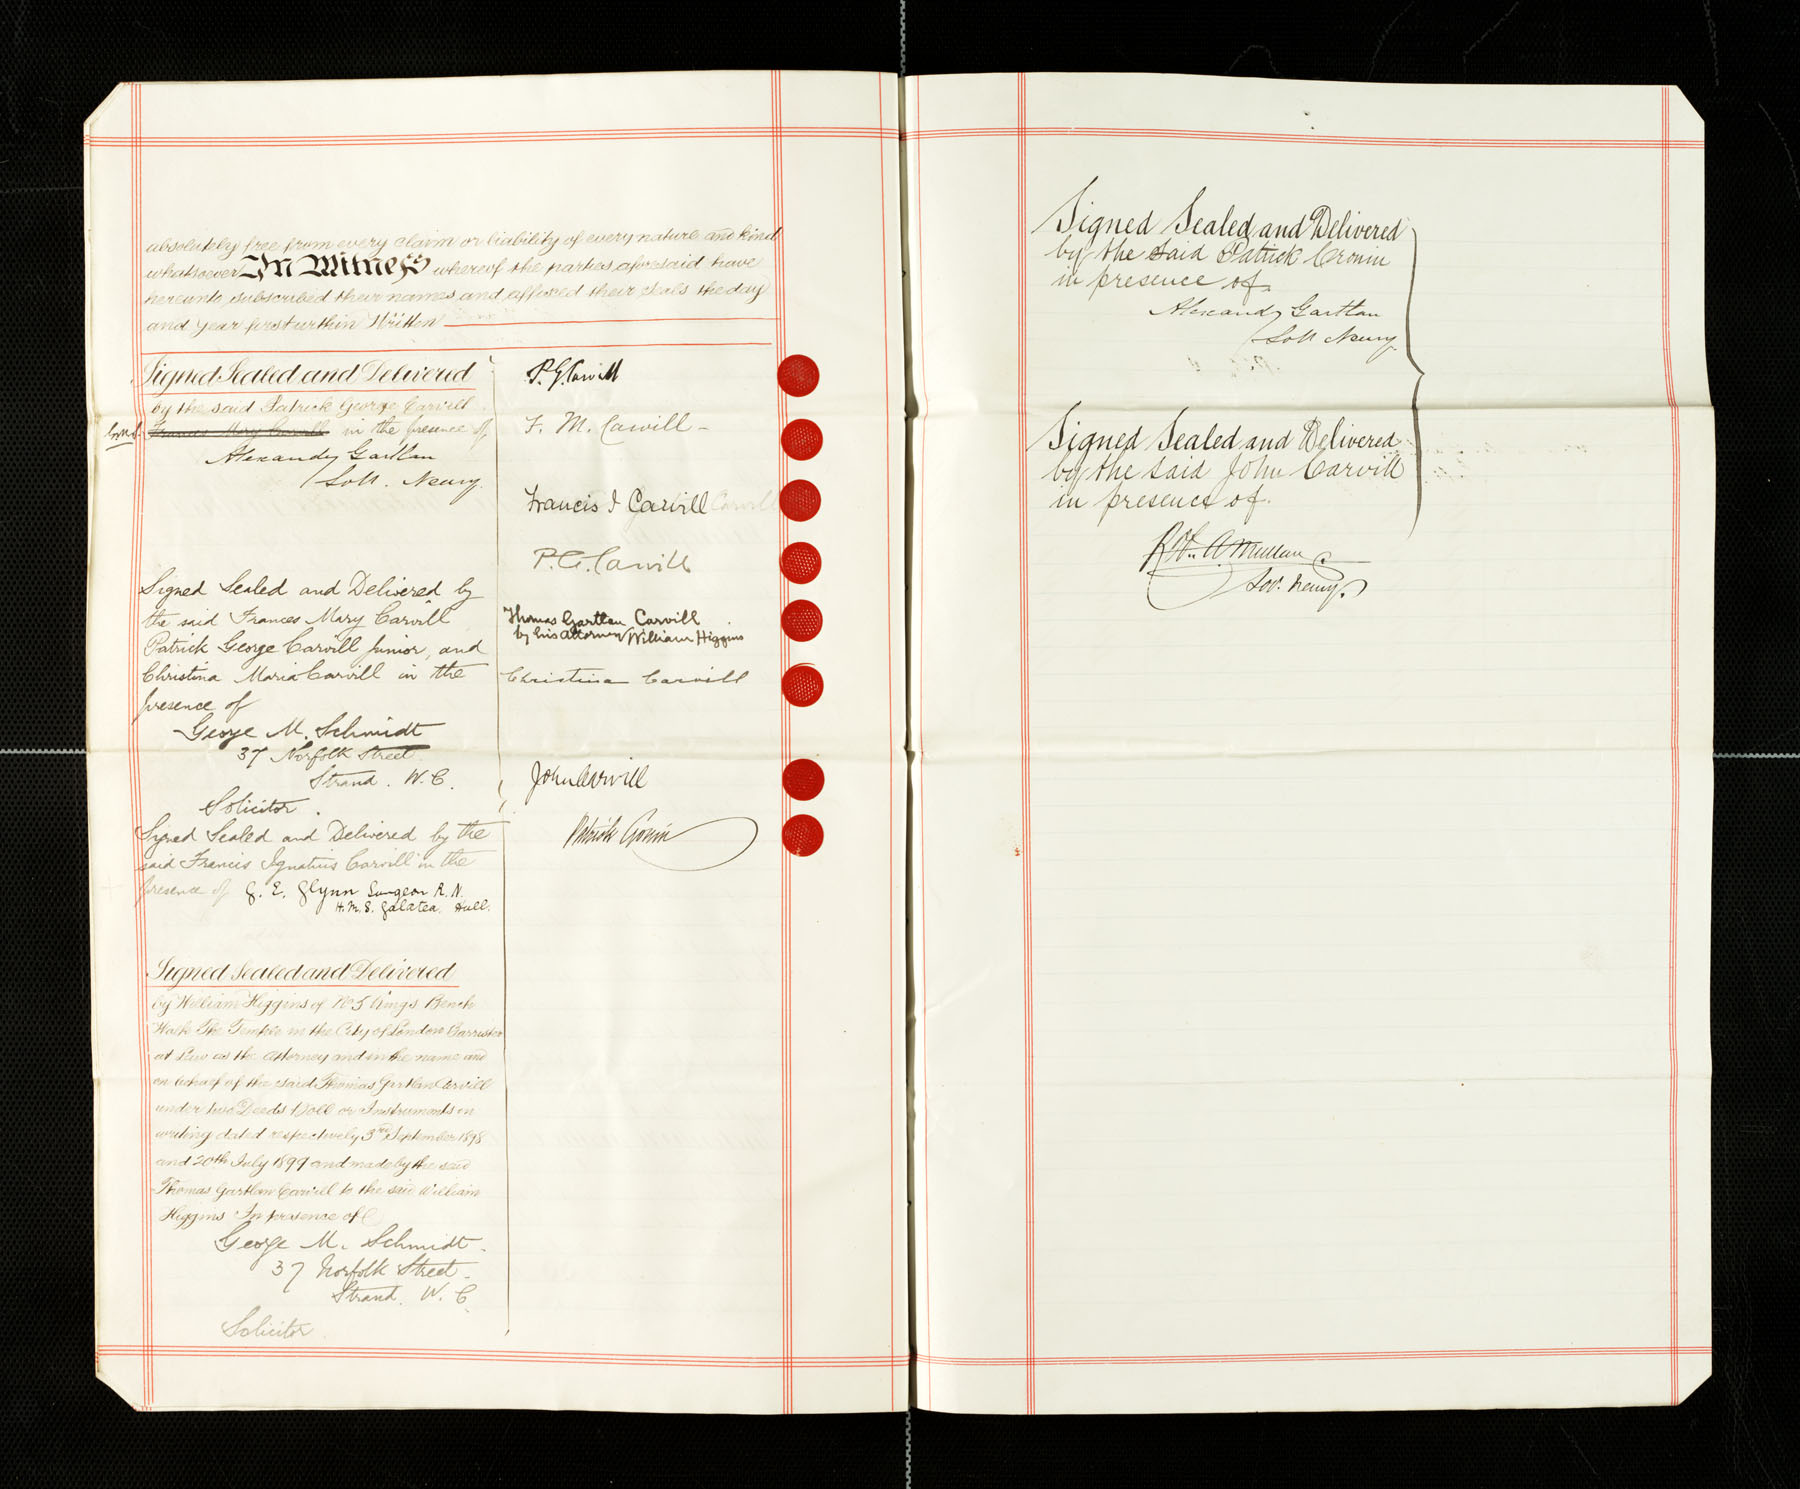 absolutely free from every claim or liability of every nature and kind
whatsoever In Witness whereof the parties aforesaid have
hereunto subscribed their names and affixed their seals the day
and year first within Written
Signed Sealed and Delivered
by the said Patrick George Carvill
Frances Mary Carvill in the presence of
Alexander Gartlan
Solr. Newry.
Signed Sealed and Delivered by
the said Frances Mary Carvill
Patrick George Carvill Junior, and
Christina Maria Carvill in the
presence of
George M. Schmidt
37 Norfolk Street
Strand. W. C.
Solicitor.
Signed Sealed and Delivered by the
said Francis Ignatius Carvill in the
presence of J. E. Glynn Surgeon R. N.
H.M.S. Galatea. Hull.
Signed Sealed and Delivered
by William Higgins of No 5 Kings Bench
Walk The Temple in the City of London Barrister
at Law as the attorney and in the name and
on behalf of the said Thomas Gartlan Carvill
under two Deeds Poll or Instruments in
writing dated respectively 3rd September 1898
and 20th July 1899 and made by the said
Thomas Gartlan Carvill to the said William
Higgins In presence of
George M. Schmidt.
37 Norfolk Street.
Strand. W. C.
Solicitor.
P. G. Carvill
F. M. Carvill
Francis I Carvill Carvill
P. G. Carvill
Thomas Gartlan Carvill
by his attorney William Higgins
Christina Carvill
John Carvill
Patrick Cronin
Signed Sealed and Delivered
by the said Patrick Cronin
in presence of
Alexander Gartlan
Solr Newry.
Signed Sealed and Delivered
by the said John Carvill
in presence of.
Mullan
Sol. Newry.